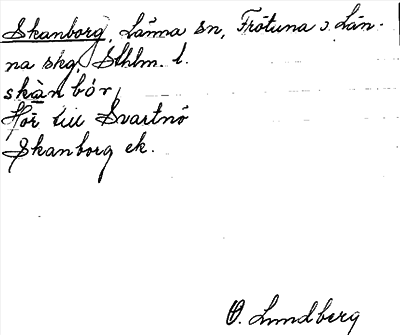 Skanborg, Länna sn, Frötuna o Län-
na skg, Sthlm. l.
skàn bór,
Hör till Svartnö
Skanborg ek.
O. Lundberg